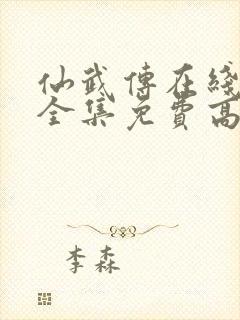 仙武傳在綫
全集免費高
李森